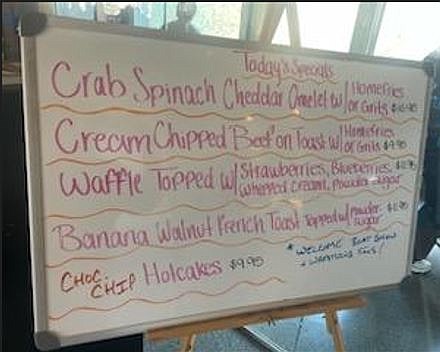 Today's Specials
Crab Spinach Cheddar Omelet w/ Homefries
or Grits
Cream Chipped Beef on Toast w/ Homefries
or Grits $9.95
Waffle Topped w/ Strawberries, Blueberries,
Whipped Cream, Powder Sugar
Banana Walnut French Toast Topped w/ powder
sugar
CHOC. CHIP Hotcakes $9.95
* WELCOME BOAT SHOW